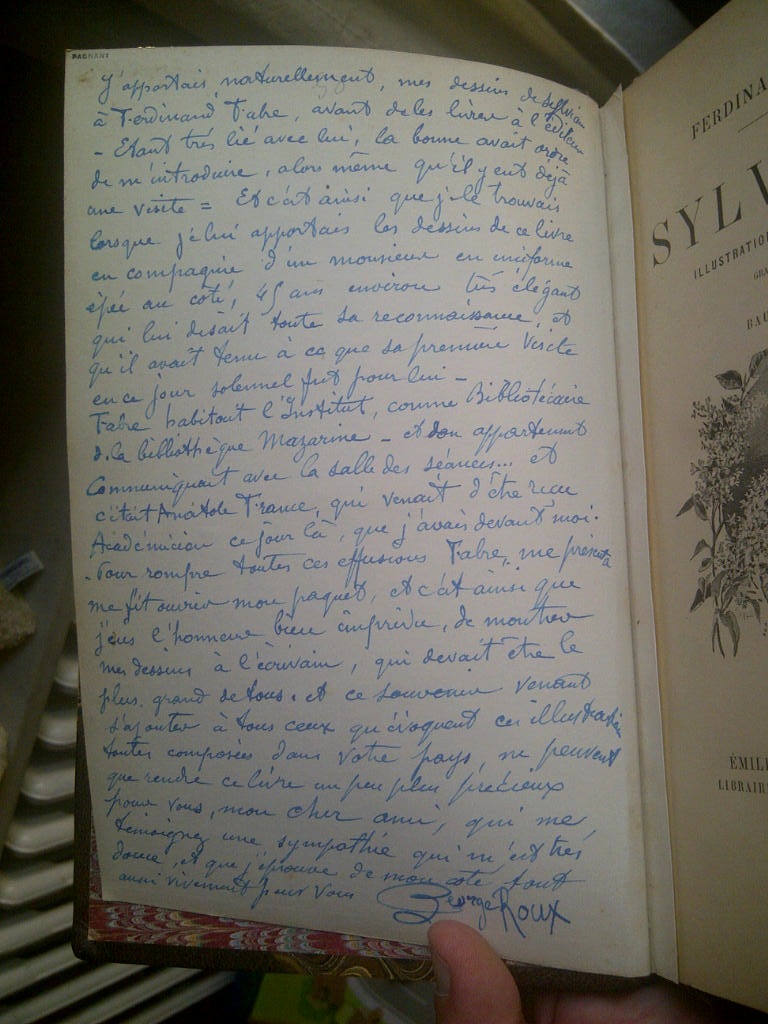 PAGNANT
J'apportais, naturellement, mes dessins de Sylviane
à Ferdinand Fabre, avant de les livrer à l'éditeur
- Etant très lié avec lui, la bonne avait ordre
de m'introduire, alors même qu'il y eut déjà
une visite = Et c'est ainsi que je le trouvais
lorsque je lui apportais les dessins de ce livre
en compagnie d'un monsieur en uniforme
épée au coté, 45 ans environ très élégant
qui lui disait toute sa reconnaissance, et
qu'il avait tenu à ce que sa première visite
en ce jour solennel fut pour lui -
Fabre habitait l'Institut, comme Bibliotécaire
de la bibliothèque Mazarine - et son appartement
Communiquait avec la salle des séances... et
c'était Anatole France, qui venait d'être reçu
Académicien ce jour là, que j'avais devant moi.
- Pour rompre toutes ces effusions Fabre, me présenta
me fit ouvrir mon paquet, et c'est ainsi que
j'eus l'honneur bien imprévu, de montrer
mes dessins à l'écrivain, qui devait être le
plus grand de tous. et ce souvenir venant
s'ajouter à tous ceux qu'évoquent ces illustrations
toutes composées dans votre pays, ne peuvent
que rendre ce livre un peu plus précieux
pour vous, mon cher ami, qui me
témoignez une sympathie qui m'est très
douce, et que j'éprouve de mon coté, tout
aussi vivement pour vous
George Roux
FERDINA
SYLV
ILLUSTRATIO
GRA
BAU
ÉMIL
LIBRAIR